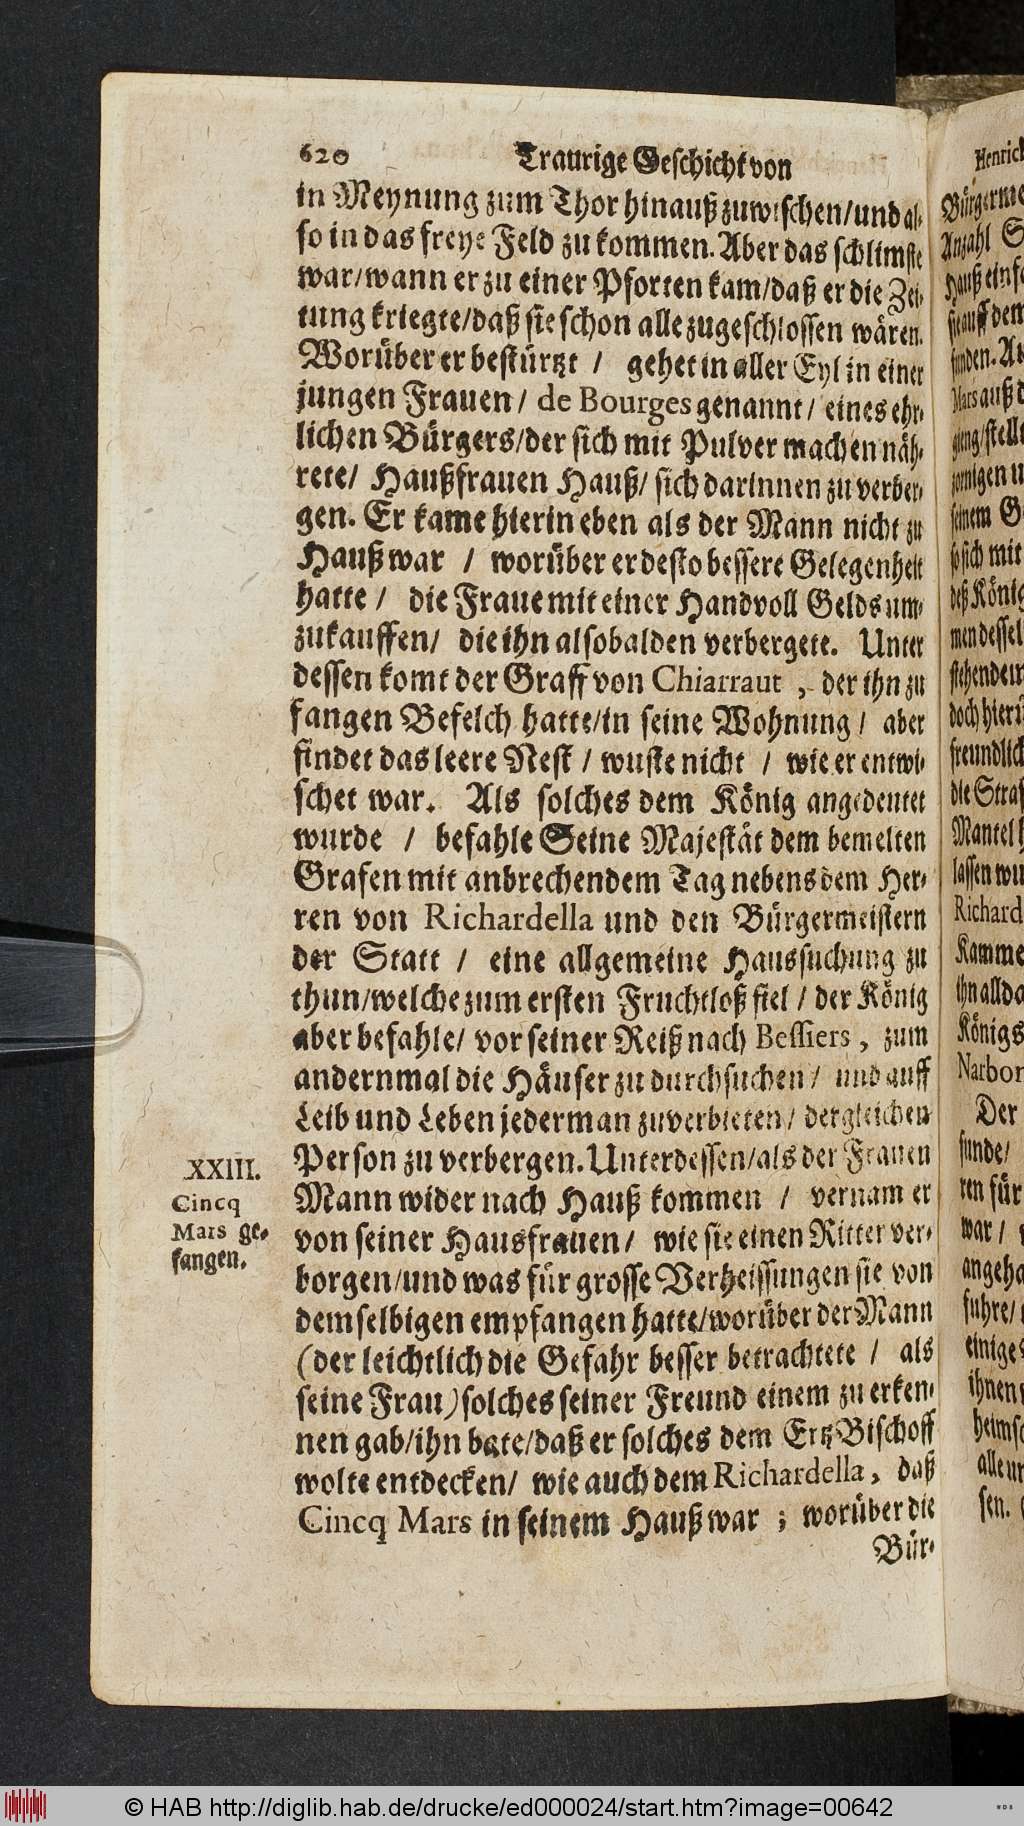 620 Traurige Geschicht von
in Meynung zum Thor hinauß zuwischen/und al-
so in das freye Feld zu kommen. Aber das schlimste
war/wann er zu einer Pforten kam/daß er die Zei-
tung kriegte/daß sie schon alle zugeschlossen wären.
Worüber er bestürtzt / gehet in aller Eyl in einer
jungen Frauen/ de Bourges genannt/ eines ehr-
lichen Bürgers/der sich mit Pulver machen näh-
rete/ Haußfrauen Hauß/ sich darinnen zu verber-
gen. Er kame hierin eben als der Mann nicht zu
Hauß war / worüber er desto bessere Gelegenheit
hatte / die Fraue mit einer Handvoll Gelds um-
zukauffen/ die ihn alsobalden verbergete. Unter
dessen komt der Graff von Chiarraut , der ihn zu
fangen Befelch hatte/in seine Wohnung / aber
findet das leere Nest / wuste nicht / wie er entwi-
schet war. Als solches dem König angedeutet
wurde / befahle Seine Majestät dem bemelten
Grafen mit anbrechendem Tag nebens dem Her-
ren von Richardella und den Bürgermeistern
der Statt / eine allgemeine Haussuchung zu
thun/welche zum ersten Fruchtloß fiel / der König
aber befahle/ vor seiner Reiß nach Bessiers, zum
andernmal die Häuser zu durchsuchen / und auff
Leib und Leben jederman zuverbieten / dergleichen
Person zu verbergen. Unterdessen/als der Frauen
Mann wider nach Hauß kommen / vernam er
von seiner Hausfrauen/ wie sie einen Ritter ver-
borgen/und was für grosse Verheissungen sie von
demselbigen empfangen hatte/worüber der Mann
(der leichtlich die Gefahr besser betrachtete / als
seine Frau) solches seiner Freund einem zu erken-
nen gab/ihn bate/daß er solches dem Ertz Bischoff
wolte entdecken/ wie auch dem Richardella, daß
Cincq Mars in seinem Hauß war ; worüber die
Bür-
XXIII.
Cincq
Mars ge-
fangen.
Anzahl
Hauß
sie auff dem
Mars auß
seinem
so sich mit
deß König
stehenden
doch hier
freundlich
die Straf
Mantel
lassen
Richard
Kamme
ihn allda
Königs
Narbon
Der
funde/
ren für
war /
fuhre/
einige
ihnen
sen.
© HAB http://diglib.hab.de/drucke/ed000024/start.htm?image=00642